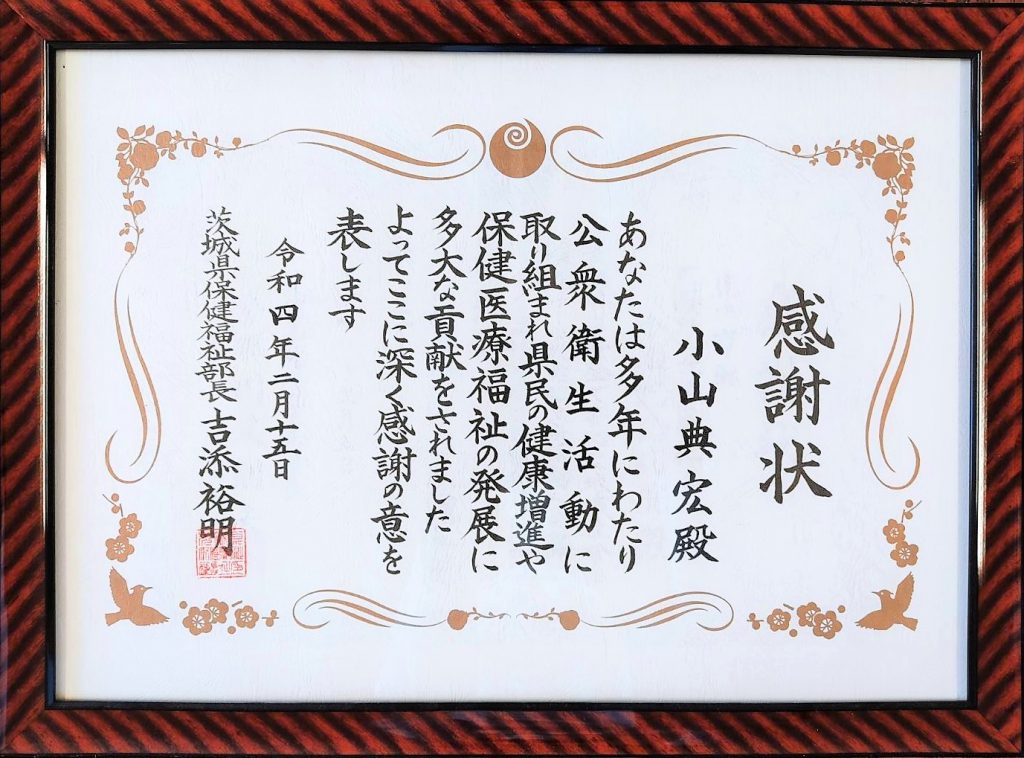 感謝状
小山典宏殿
あなたは多年にわたり
公衆衛生活動に
取り組まれ県民の健康増進や
保健医療福祉の発展に
多大な貢献をされました
よってここに深く感謝の意を
表します
令和四年二月十五日
茨城県保健福祉部長 吉添裕明